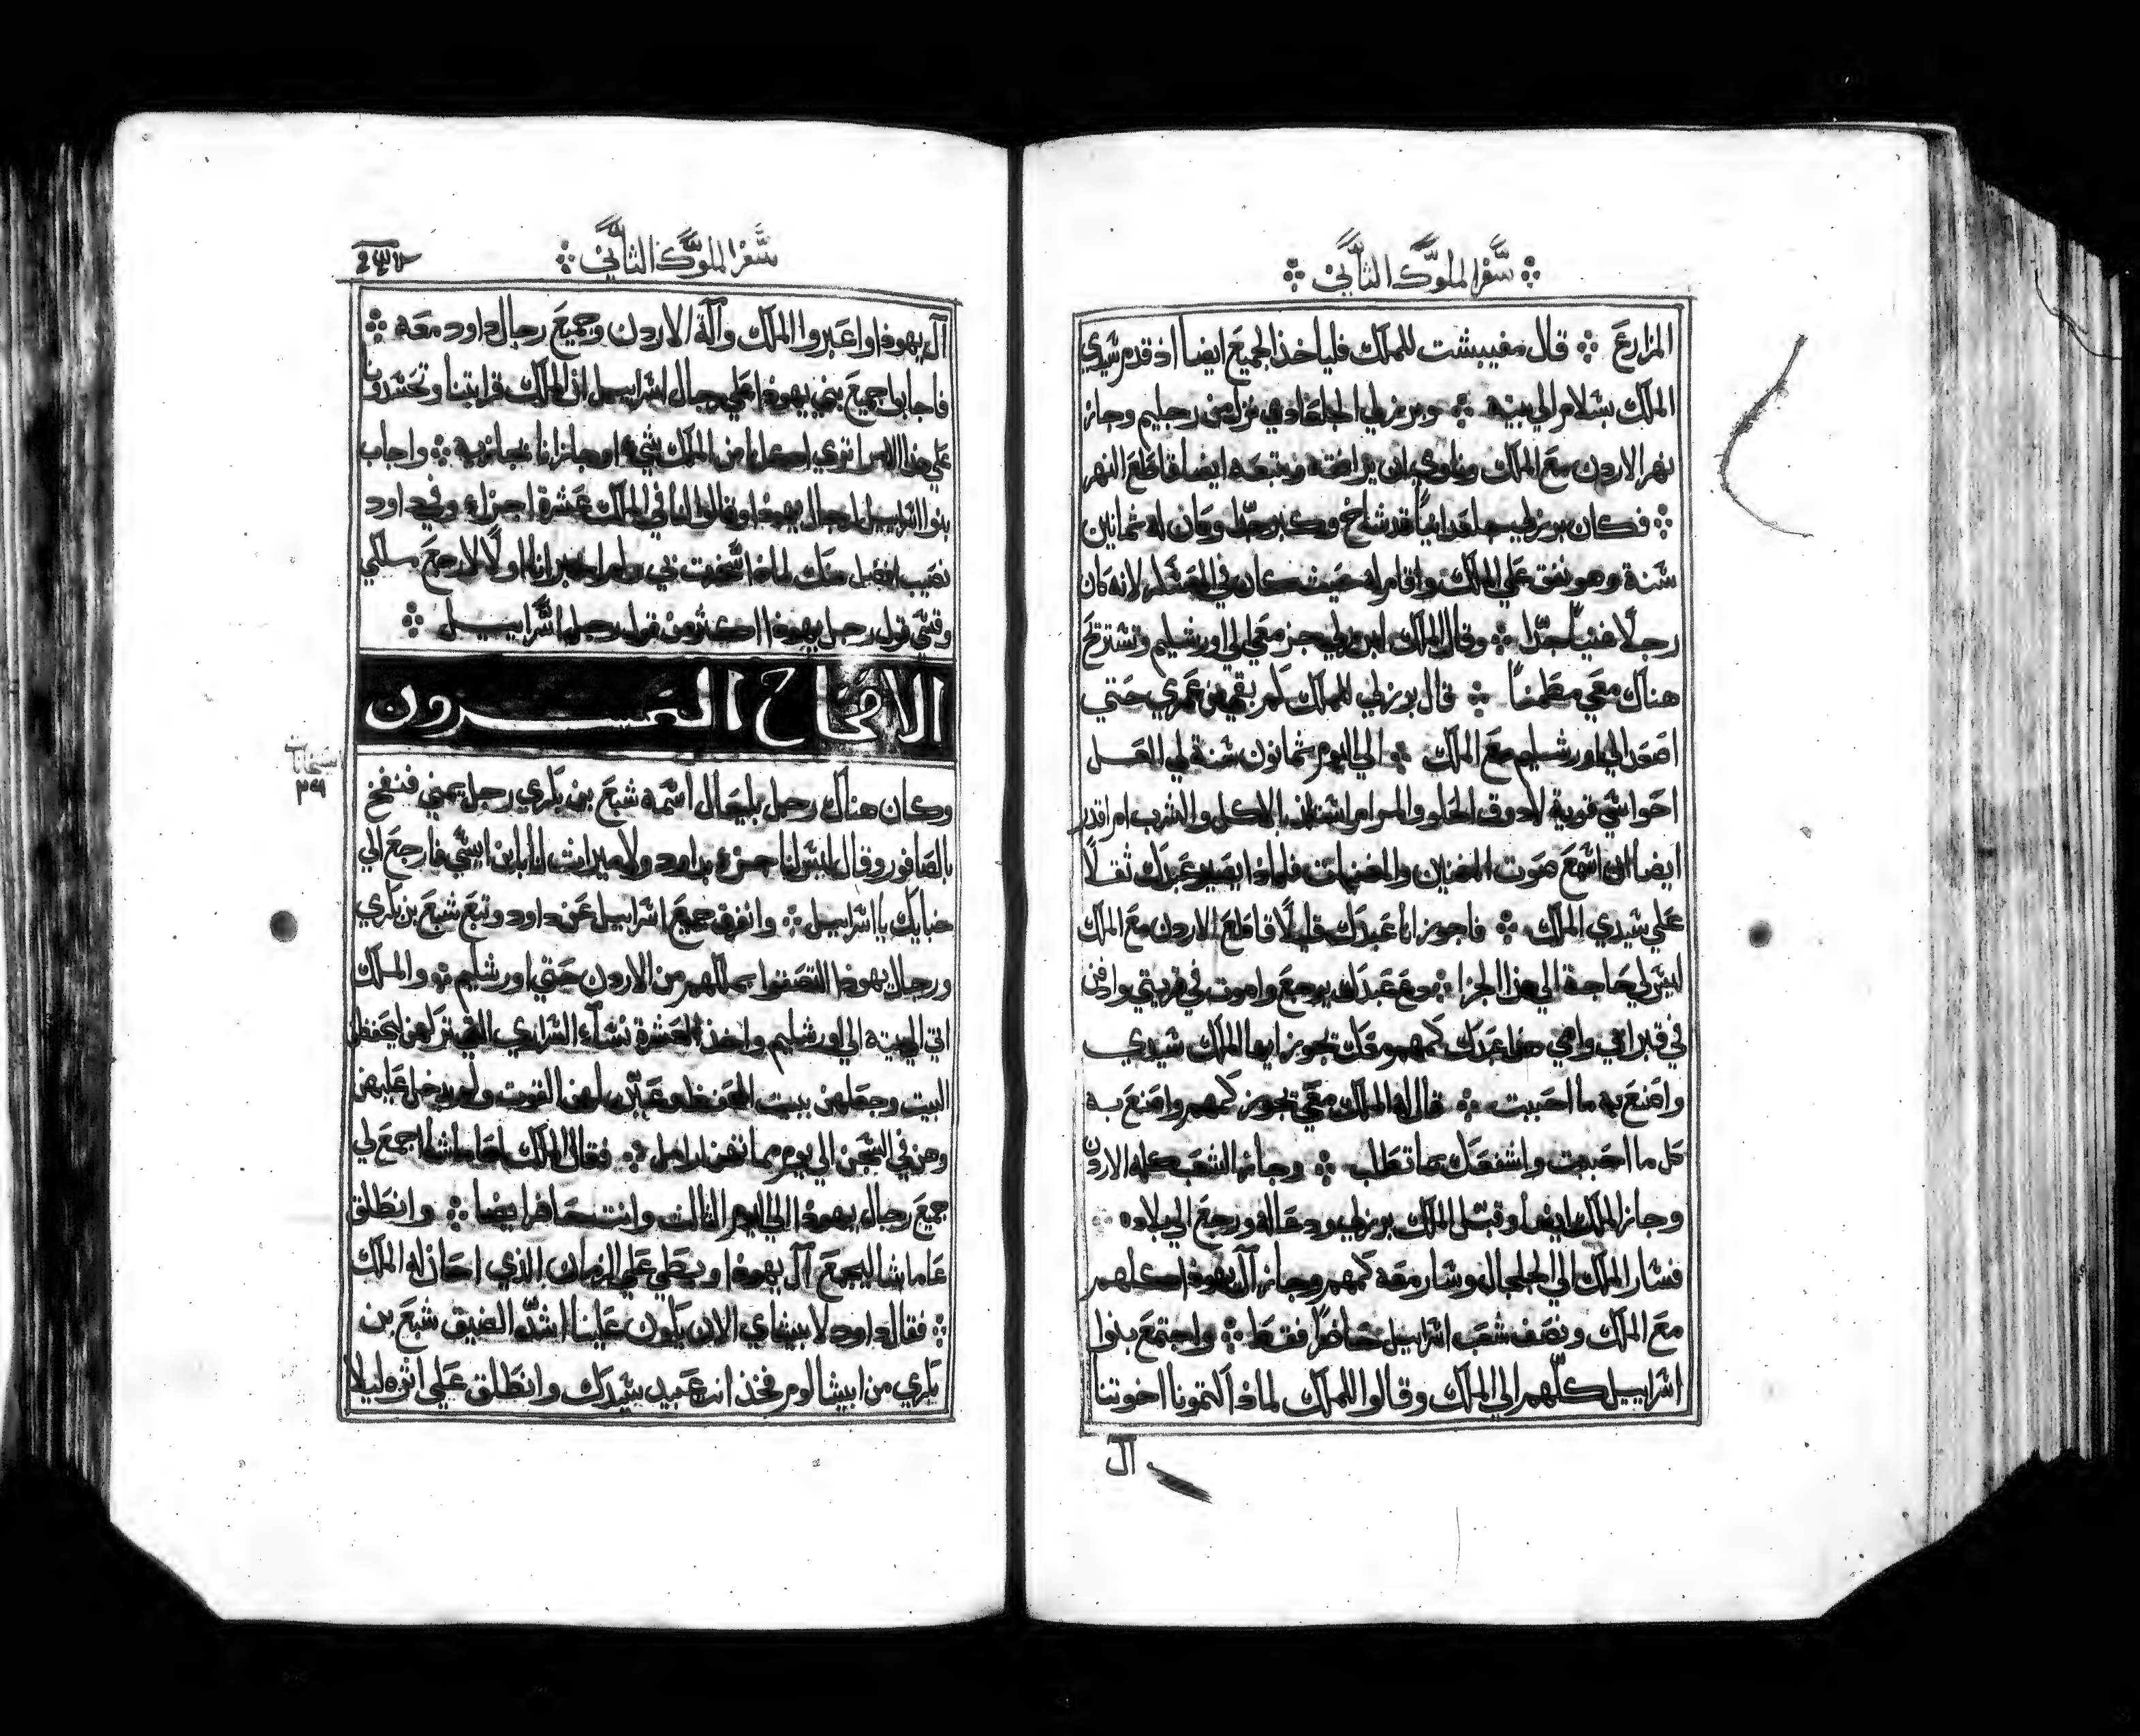 سفر الملوك الثاني
المزارع ※ قال مفيبشت للملك فلياخذ الجميع ايضا اذ قدم سيدي
الملك بسلام الي بيته ※ وبرزلي الجلعادي نزل من رجليم وجاز
نهر الاردن مع الملك ايضا قاطع النهر
※ فكان برزلي جلعدانياً قد شاخ وكبر جدّا وكان له ثمانين
سنة وهو نفق علي الملك واقام له حيث كان في العسكر لانه كان
رجلًا غنياً جدّا ※ وقال الملك لبرزلي جز معي الي اورشليم وتستريح
هناك معي مطمناً ※ قال برزلي للملك كم بقي من عمري حتي
اصعد الي اورشليم مع الملك ※ الي اليوم ثمانون سنة لي العل
احواسي قوية لادوق الحلو والمر ام استلذ بالاكل والشرب ام اقدر
ايضا ان اسمع صوت المغنيين والمغنيات فلماذا يصير عبدك ثقلًا
علي سيدي الملك ※ فاجوز انا عبدك قليلًا قاطع الاردن مع الملك
ليس لي حاجة الي هذا الجزا ※ دع عبدك يرجع واموت في قريتي وادفن
في قبر ابي وامي هوذا عبدك كمهم معك تجوز ايها الملك سيدي
واصنع به ما احببت ※ قال له الملك معي تجوز كمهم واصنع به
كل ما احببت واشفعك بما تطلب ※ وجاز الشعب كله الاردن
وجاز الملك ايضاً وقبّل الملك برزلي ودعا له ورجع الي بلاده
فسار الملك الي الجلجال وسار معه كمهم وجاز آل يهوذا كلهم
مع الملك ونصف شعب اسراييل حاضرًا فقط ※ واجتمع بنوا
اسراييل كلهم الي الملك وقالوا للملك لماذا اكتمونا اخوتنا
آل
سفر الملوك الثاني
آل يهوذا واعبروا الملك وآلة الاردن وجميع رجال داود معه ※
فاجابوا جميع بني يهوذا علي رجال اسراييل ان الملك قرابتنا وتحسدونا
علي هذا الامر اتري اكلنا من الملك شيء او جازانا بجازية ※ واجاب
بنوا اسراييل لرجال يهوذا وقالوا لنا في الملك عشرة اجزاء وفي داود
نصيب افضل منك لماذا استخفت بي ولم اخبر انا اولًا لارجع ملكي
وقسي قول رجل يهوذا اكثر من قول رجل اسراييل ※
الاصحاح العشرون
وكان هناك رجل بليعال اسمه شبع بن باكري رجل يميني فنفخ
بالصافور وقال ليس لنا جزء بداود ولا ميراث لنا بابن ايسي فارجع الي
خبايك يا اسراييل ※ وانفرق جميع اسراييل عن داود وتبع شبع بن باكري
ورجال يهوذا التصقوا بملكهم من الاردن حتي اورشليم ※ والملك
اتي الي بيته الي اورشليم واخذ العشرة نسآء السراري التي تركهن ليحفظن
البيت وجعلهن ببيت المحفظ وعيّن لهن القوت ولم يدخل عليهن
وهن في السجن الي يوم مماتهن ارامل ※ فقال الملك لعاماشا اجمع لي
جميع رجال يهوذا الي اليوم الثالث وانت حاضر ايضا ※ وانطلق
عاماشا ليجمع آل يهوذا وبطي علي الزمان الذي احان له الملك
※ فقال داود لابيشاي الان يكون علينا اشدّ الضيق شبع بن
باكري من ابيشالوم فخذ انت عبيد سيدك وانطلق علي اثره ليلا